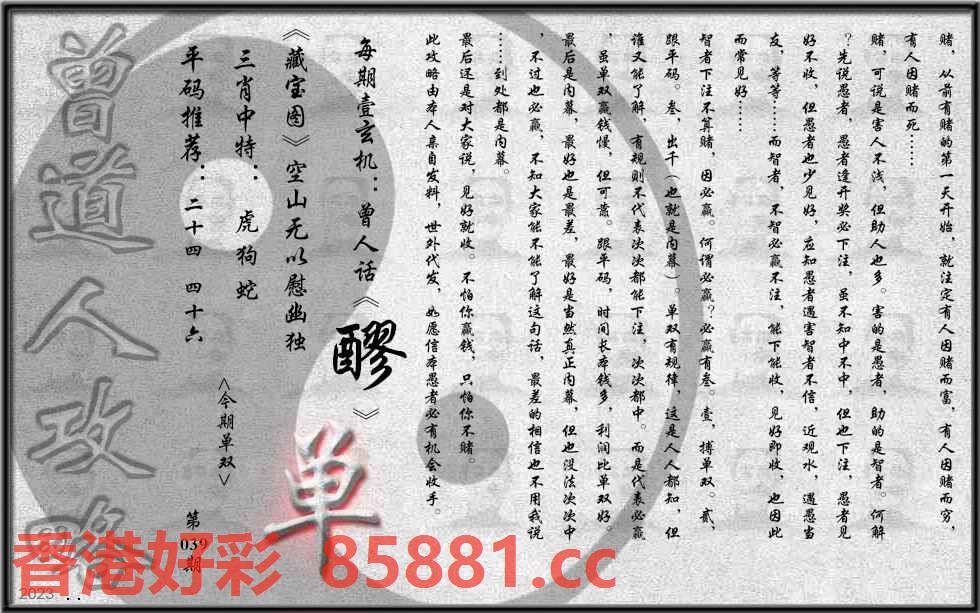 赌，从前有赌的第一天开始，就注定有人因赌而富，有人因赌而穷，
有人因赌而死……
赌，可说是害人不浅，但助人也多。害的是愚者，助的是智者。何解
？先说愚者，愚者逢开奖必下注，虽不知中不中，但也下注，愚者见
好不收，但愚者也少见好，应知愚者遇害智者不信，近观水，遇愚当
友，等等……而智者，不智必赢不注，能下能收，见好即收，也因此
而常见好……
智者下注不算赌，因必赢。何谓必赢？必赢有叁。壹，搏单双。贰，
跟平码。叁，出千（也就是内幕）。单双有规律，这是人人都知，但
谁又能了解，有规则不代表次次都能下注，次次都中。而是代表必赢
，虽单双赢钱慢，但可靠。跟平码，时间长本钱多，利润比单双好。
最后是内幕，最好也是最差，最好是当然真正内幕，但也没法次次中
，不过也必赢，不知大家能不能了解这句话，最差的相信也不用我说
……到处都是内幕。
最后还是对大家说，见好就收。不怕你赢钱，只怕你不赌。
此攻略由本人亲自发料，世外代发，如愿信本愚者必有机会收手。
每期壹玄机：曾人话《醪》
《藏宝图》空山无以慰幽独
三肖中特：虎狗蛇
平码推荐：二十四 四十六
<今期单双>
单
第
039
期
曾道人攻略
香港好彩 85881.cc
2023